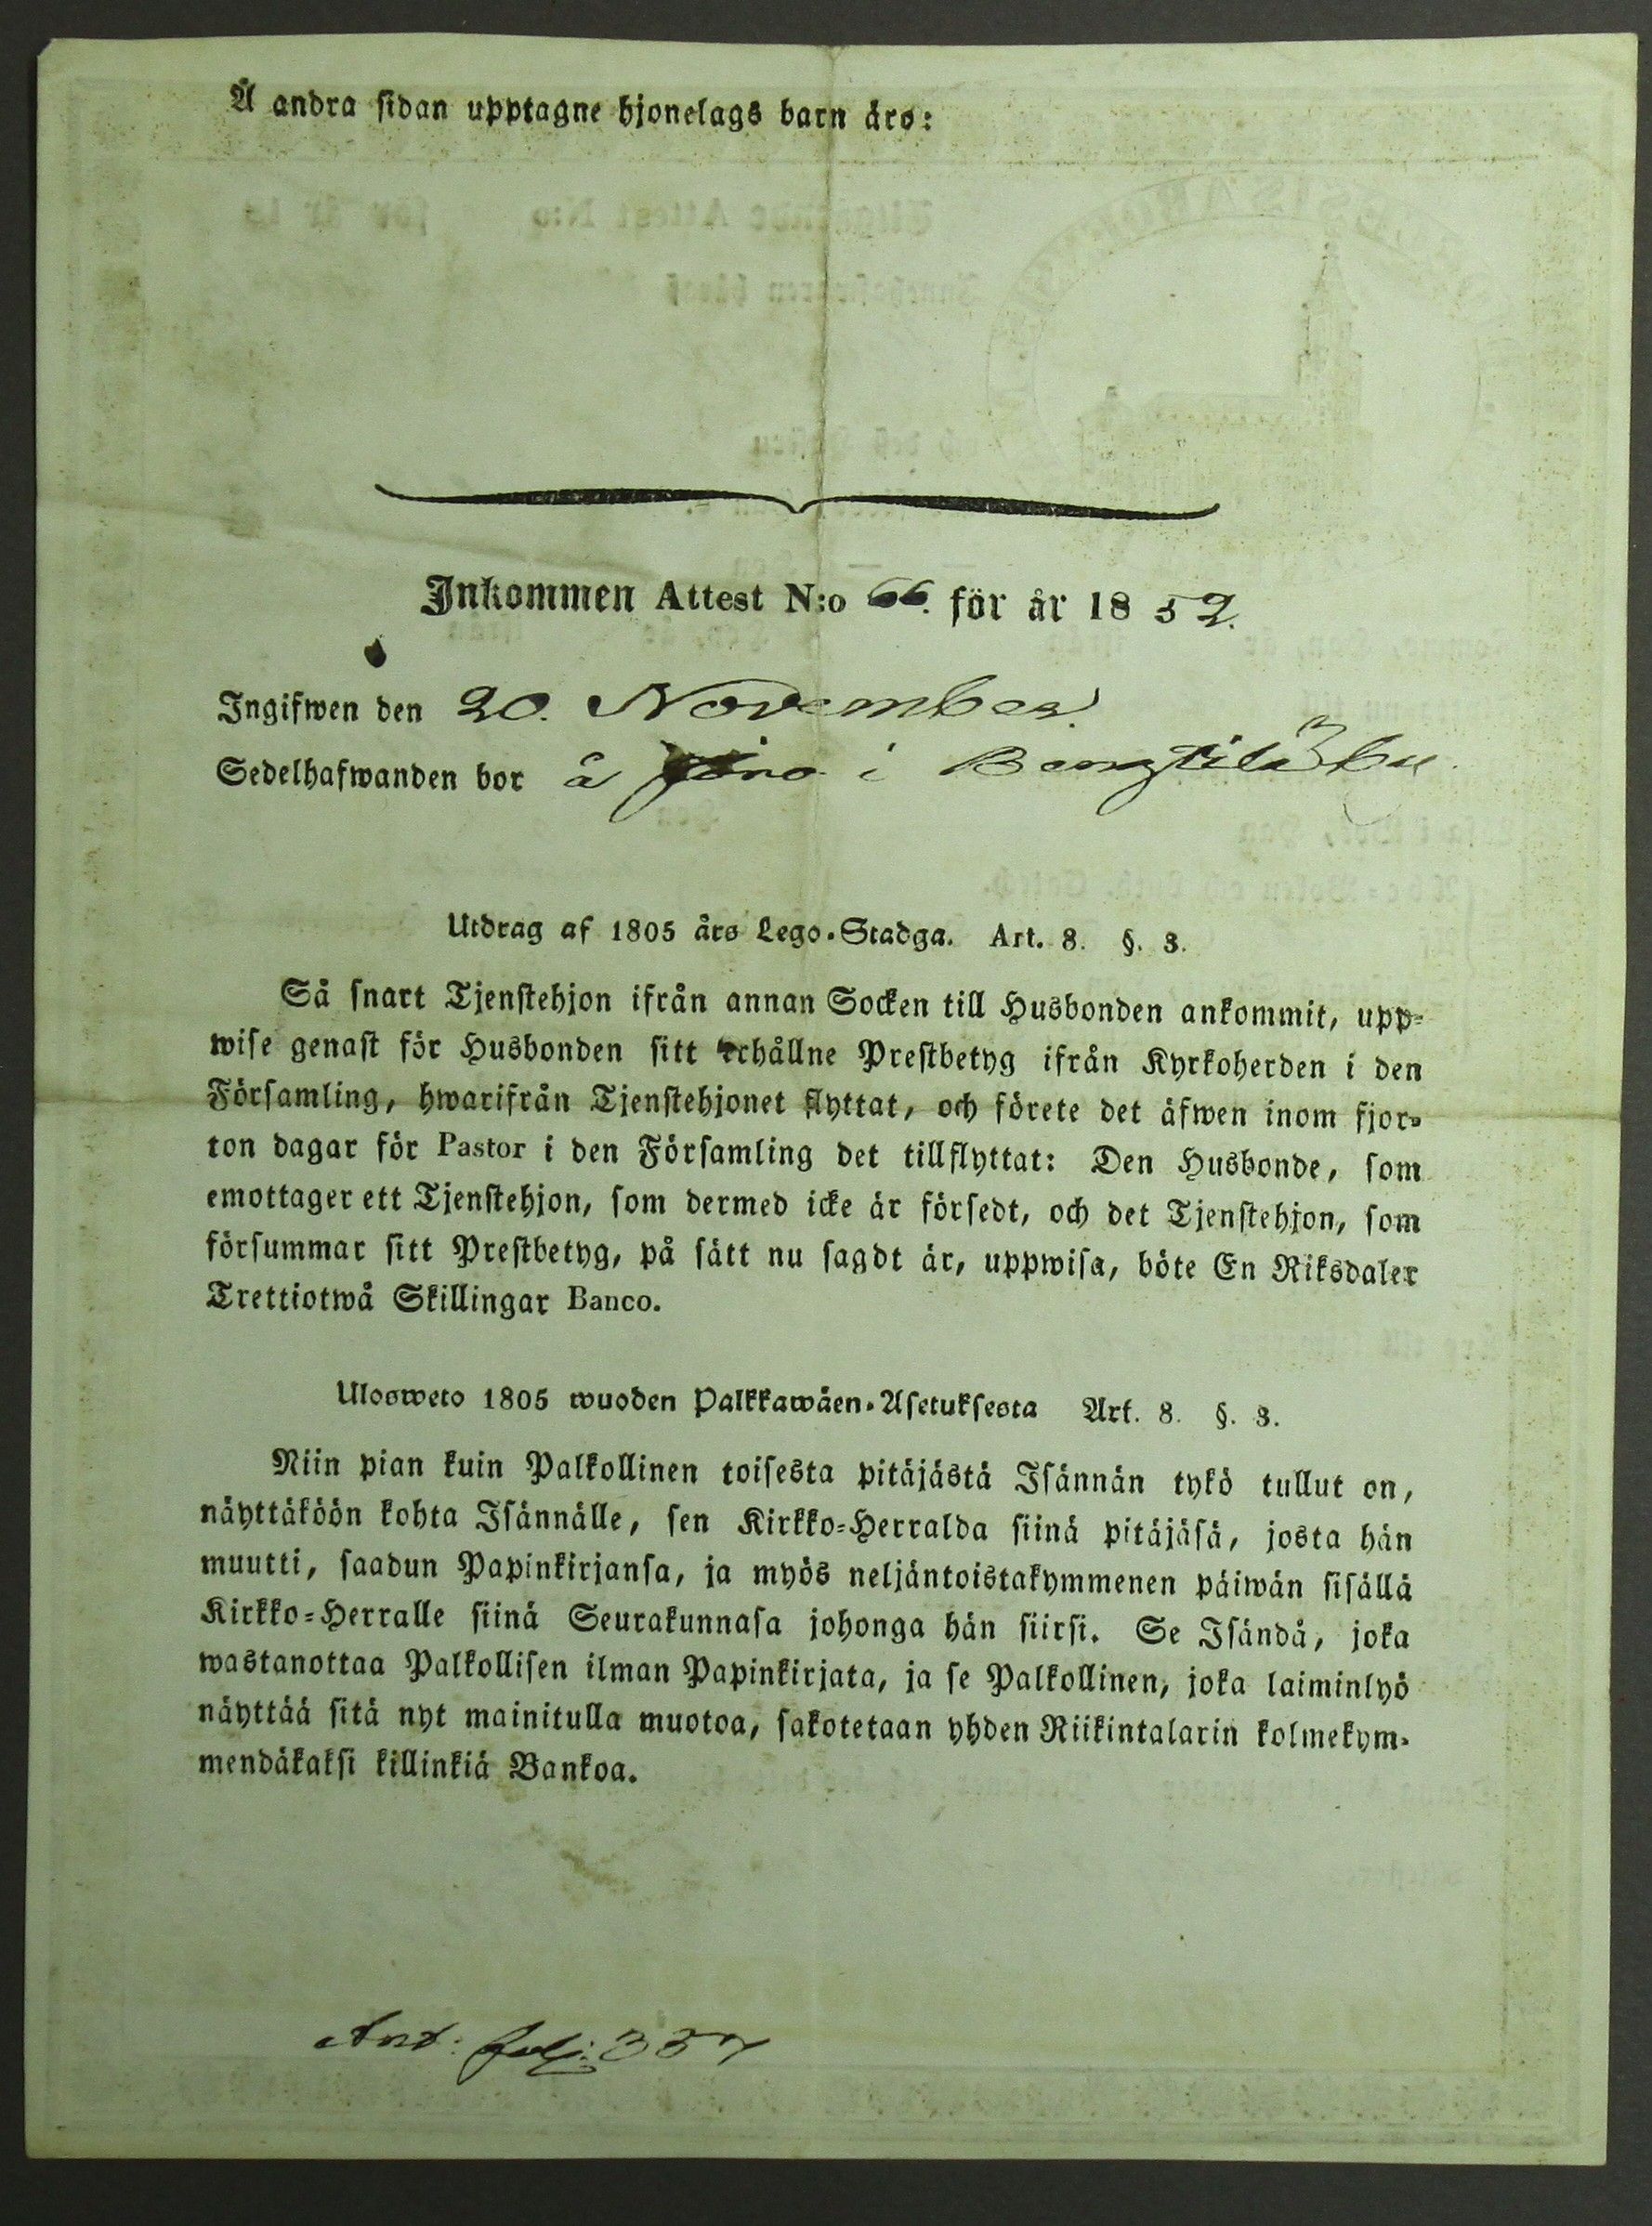 Å andra sidan upptagne hjonelags barn äro:
Inkommen Attest N:o 66. för år 1852.
Ingifwen den 20. November
Sedelhafwanden bor å i
Utdrag af 1805 års Lego-Stadga. Art. 8. §. 3.
Så snart Tjenstehjon ifrån annan Socken till Husbonden ankommit, upp-
wise genast för Husbonden sitt erhållne Prestbetyg ifrån Kyrkoherden i den
Församling, hwarifrån Tjenstehjonet flyttat, och förete det äfwen inom fjor-
ton dagar för Pastor i den Församling det tillflyttat: Den Husbonde, som
emottager ett Tjenstehjon, som dermed icke är försedt, och det Tjenstehjon, som
försummar sitt Prestbetyg, på sätt nu sagdt är, uppwisa, böte En Riksdaler
Trettiotwå Skillingar Banco.
Ulosweto 1805 wuoden Palkkawäen-Asetuksesta Art. 8. §. 3.
Niin pian kuin Palkollinen toisesta pitäjästä Isännän tykö tullut on,
näyttäköön kohta Isännälle, sen Kirkko-Herralda siinä pitäjäsä, josta hän
muutti, saadun Papinkirjansa, ja myös neljäntoistakymmenen päiwän sisällä
Kirkko-Herralle siinä Seurakunnasa johonga hän siirsi. Se Isändä, joka
wastanottaa Palkollisen ilman Papinkirjata, ja se Palkollinen, joka laiminlyö
näyttää sitä nyt mainitulla muotoa, sakotetaan yhden Riikintalarin kolmekym-
mendäkaksi killinkiä Bankoa.
Ant: folj: 337